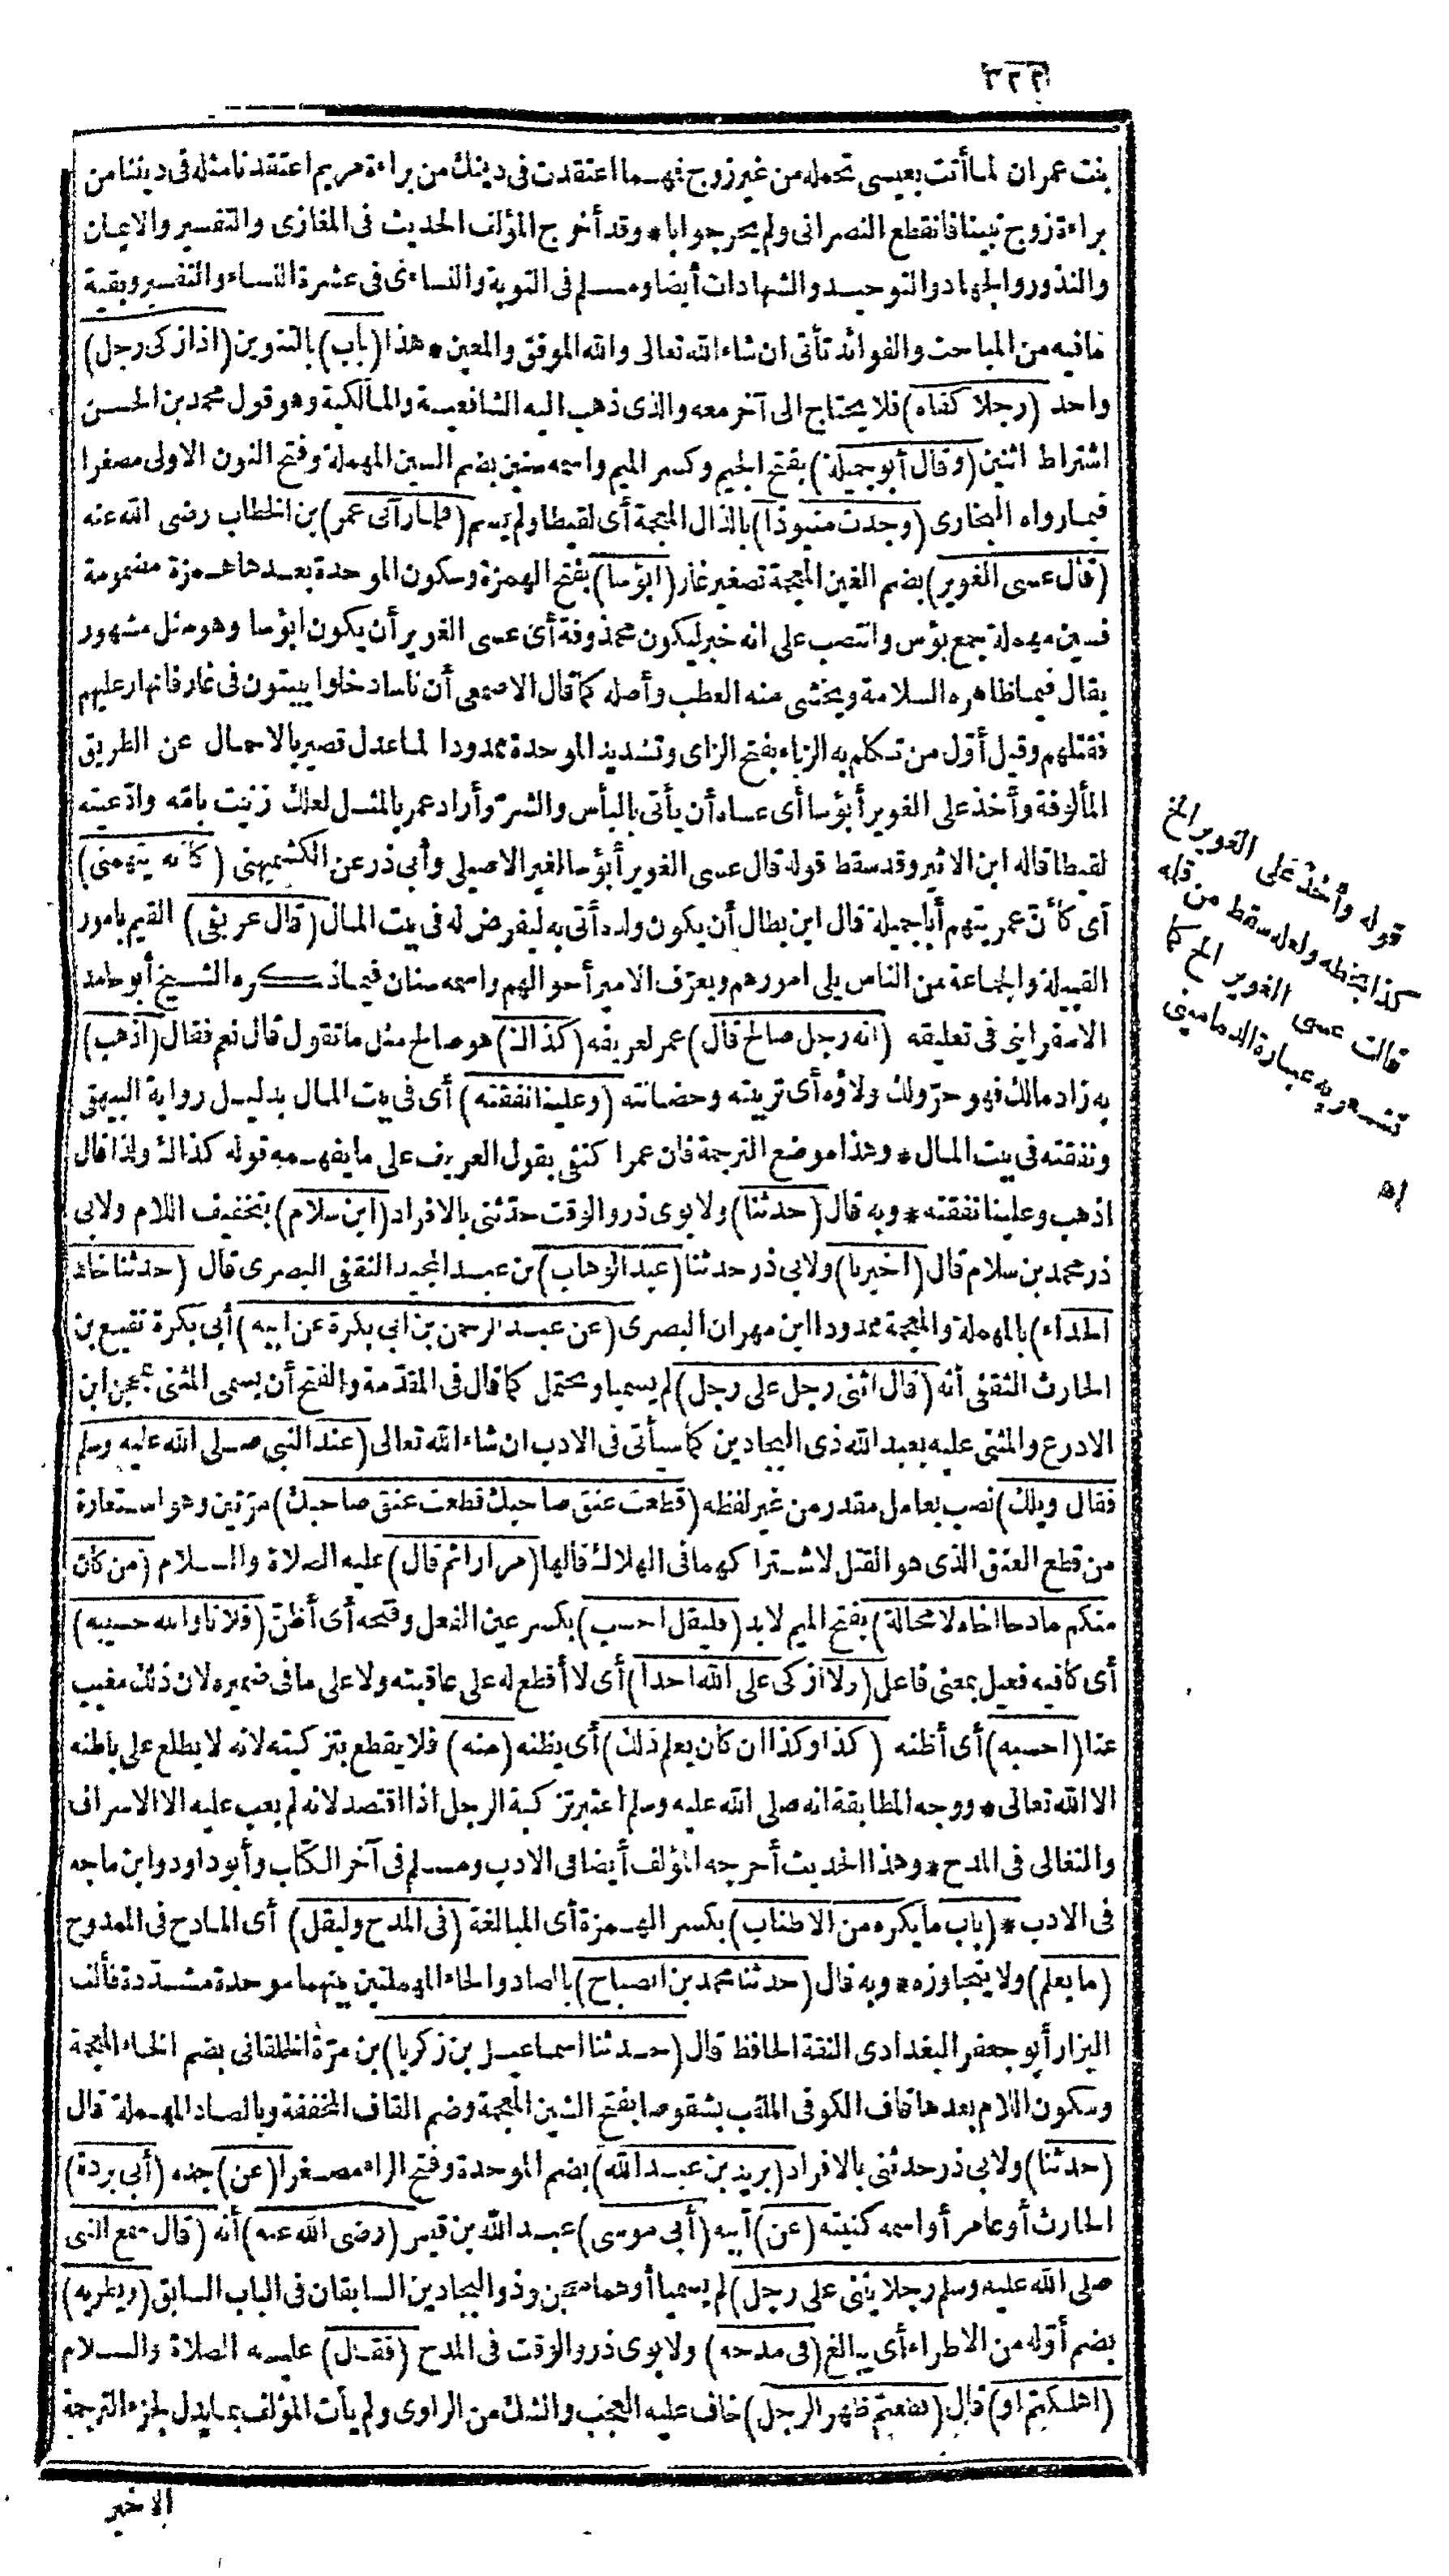 ٣٢٦
بنت عمران لما أتت بعيسى تحمله من غير زوج فهما اعتقدت في دينك من براءة مريم اعتقدنا مثله في ديننا من
براءة زوج نبينا فانقطع النصراني ولم يحر جوابا * وقد أخرج المؤلف الحديث في المغازى والتفسير والايمان
والنذور والجهاد والتوحيد والشهادات أيضا ومسلم في التوبة والنساءى في عشرة النساء والتفسير وبقية
مافيه من المباحث والفوائد تأتى ان شاء الله تعالى والله الموفق والمعين * هذا (باب) بالتنوين (اذا زكى رجل)
واحد (رجلا كفاه) فلا يحتاج الى آخر معه والذى ذهب اليه الشافعية والمالكية وهو قول محمد بن الحسن
اشتراط اثنين (وقال أبو جميلة) بفتح الجيم وكسر الميم واسمه سنين بضم السين المهملة وفتح النون الاولى مصغرا
فيمارواه البخارى (وجدت منبوذا) بالذال المعجمة أى لقيطا ولم يسم (فلما رآنى عمر) بن الخطاب رضى الله عنه
(قال عسى الغوير) بضم الغين المعجمة تصغير غار (ابؤسا) بفتح الهمزة وسكون الموحدة بعدها همزة مضمومة
فسين مهملة جمع بؤس وانتصب على انه خبر ليكون محذوفة أى عسى الغوير أن يكون ابؤسا وهو مثل مشهور
يقال فيما ظاهره السلامة ويخشى منه العطب وأصله كما قال الاصمعى أن ناسا دخلوا يبيتون في غار فانهار عليهم
فقتلهم وقيل أوّل من تكلم به الزباء بفتح الزاى وتشديد الموحدة ممدودا لما عدل قصير بالاحمال عن الطريق
المألوفة وأخذ على الغوير أبؤسا أى عساه أن يأتى بالبأس والشرّ وأراد عمر بالمثل لعلك زنيت بامّه وادّعيته
لقيطا قاله ابن الاثير وقد سقط قوله قال عسى الغوير أبؤسا لغير الاصيلى وأبى ذر عن الكشميهنى (كانه يتهمنى)
أى كأنّ عمر يتهم أبا جميلة قال ابن بطال أن يكون ولده أتى به ليفرض له في بيت المال (قال عريفى) القيم بامور
القبيلة والجماعة من الناس يلى امورهم ويعرّف الامير أحوالهم واسمه سنان فيماذكره الشيخ أبو حامد
الاسفراينى في تعليقه (انه رجل صالح قال) عمر لعريفه (كذاك) هو صالح مثل ما تقول قال نعم فقال (اذهب)
به زاد مالك فهو حرّ ولك ولاؤه أى تربيته وحضانته (وعلينا نفقته) أى في بيت المال بدليل رواية البيهقى
ونفقته في بيت المال * وهذا موضع الترجمة فان عمرا كتفى بقول العريف على مايفهمه قوله كذاك ولذا قال
اذهب وعلينا نفقته * وبه قال (حدثنا) ولابوى ذر والوقت حدّثنى بالافراد (ابن سلام) بتخفيف اللام ولابى
ذر محمد بن سلام قال (اخبرنا) ولابى ذر حدثنا (عبد الوهاب) بن عبد المجيد الثقفى البصرى قال (حدثنا خالد
الحذاء) بالمهملة والمعجمة ممدودا ابن مهران البصرى (عن عبد الرحمن بن ابى بكرة عن ابيه) أبى بكرة نفيع بن
الحارث الثقفى أنه (قال اثنى رجل على رجل) لم يسميا ويحتمل كما قال في المقدّمة والفتح أن يسمى المثنى بمحجن ابن
الادرع والمثنى عليه بعبد الله ذى البجادين كما سيأتى في الادب ان شاء الله تعالى (عند النبى صلى الله عليه وسلم
فقال ويلك) نصب بعامل مقدر من غير لفظه (قطعت عنق صاحبك قطعت عنق صاحبك) مرّتين وهو استعارة
من قطع العنق الذى هو القتل لاشتراكهما في الهلاك قالها (مرارا ثم قال) عليه الصلاة والسلام (من كان
منكم مادحا اخاه لا محالة) بفتح الميم لابد (فليقل احسب) بكسر عين الفعل وفتحه أى أظنّ (فلانا والله حسيبه)
أى كافيه فعيل بمعنى فاعل (ولا ازكى على الله احدا) أى لا أقطع له على عاقبته ولا على مافى ضميره لان ذلك مغيب
عنا (احسبه) أى أظنه (كذا وكذا ان كان يعلم ذلك) أى يظنه (منه) فلا يقطع بتزكيته لانه لا يطلع على باطنه
الا الله تعالى * ووجه المطابقة انه صلى الله عليه وسلم اعتبر تزكية الرجل اذا اقتصد لانه لم يعب عليه الا الاسراف
والتغالى في المدح * وهذا الحديث أخرجه المؤلف أيضا في الادب ومسلم في آخر الكتاب وأبو داود وابن ماجه
في الادب * (باب مايكره من الاطناب) بكسر الهمزة أى المبالغة (في المدح وليقل) أى المادح في الممدوح
(مايعلم) ولا يتجاوزه * وبه قال (حدثنا محمد بن الصباح) بالصاد والحاء المهملتين بينهما موحدة مشدّدة فألف
البزار أبو جعفر البغدادى الثقة الحافظ قال (حدثنا اسماعيل بن زكريا) بن مرّة الخلقانى بضم الخاء المعجمة
وسكون اللام بعدها قاف الكوفى الملقب بشقوصا بفتح الشين المعجمة وضم القاف المخففة وبالصاد المهملة قال
(حدثنا) ولابى ذر حدثنى بالافراد (بريد بن عبد الله) بضم الموحدة وفتح الراء مصغرا (عن) جده (أبى بردة)
الحارث أو عامر أو اسمه كنيته (عن) أبيه (أبى موسى) عبد الله بن قيس (رضى الله عنه) أنه (قال سمع النبى
صلى الله عليه وسلم رجلا يثنى على رجل) لم يسميا أو هما محجن وذو البجادين السابقان في الباب السابق (ويطريه)
بضم أوّله من الاطراء أى يبالغ (في مدحه) ولابوى ذر والوقت في المدح (فقال) عليه الصلاة والسلام
(اهلكتم او) قال (قطعتم ظهر الرجل) خاف عليه العجب والشك من الراوى ولم يأت المؤلف بما يدل لجزء الترجمة
الاخير
قوله وأخذ على الغوير الخ
كذا بخطه ولعله سقط من قلمه
قالت عسى الغوير الخ كما
تشعر به عبارة الدمامينى
اه